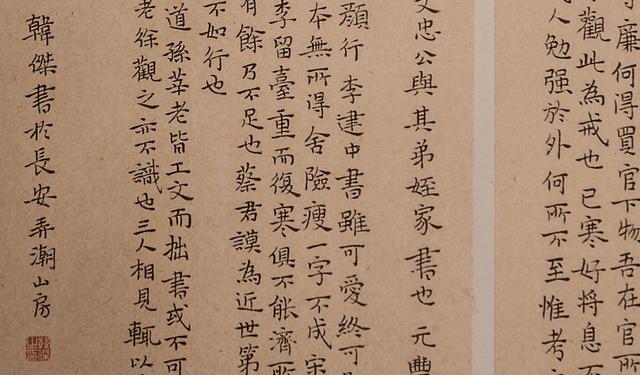 廉何得買官下物吾在官所
觀此為戒也已寒好将息不
人勉强於外何所不至惟考
文忠公與其弟姪家書也元豐
顔行李建中書雖可愛終可
本無所得舍險瘦一字不成宋
李留臺重而復寒俱不能濟所
有餘乃不足也蔡君謨為近世第
不如行也
道孫莘老皆工文而拙書或不可
老徐觀之亦不識也三人相見輒以
韓傑書於長安弄潮山房